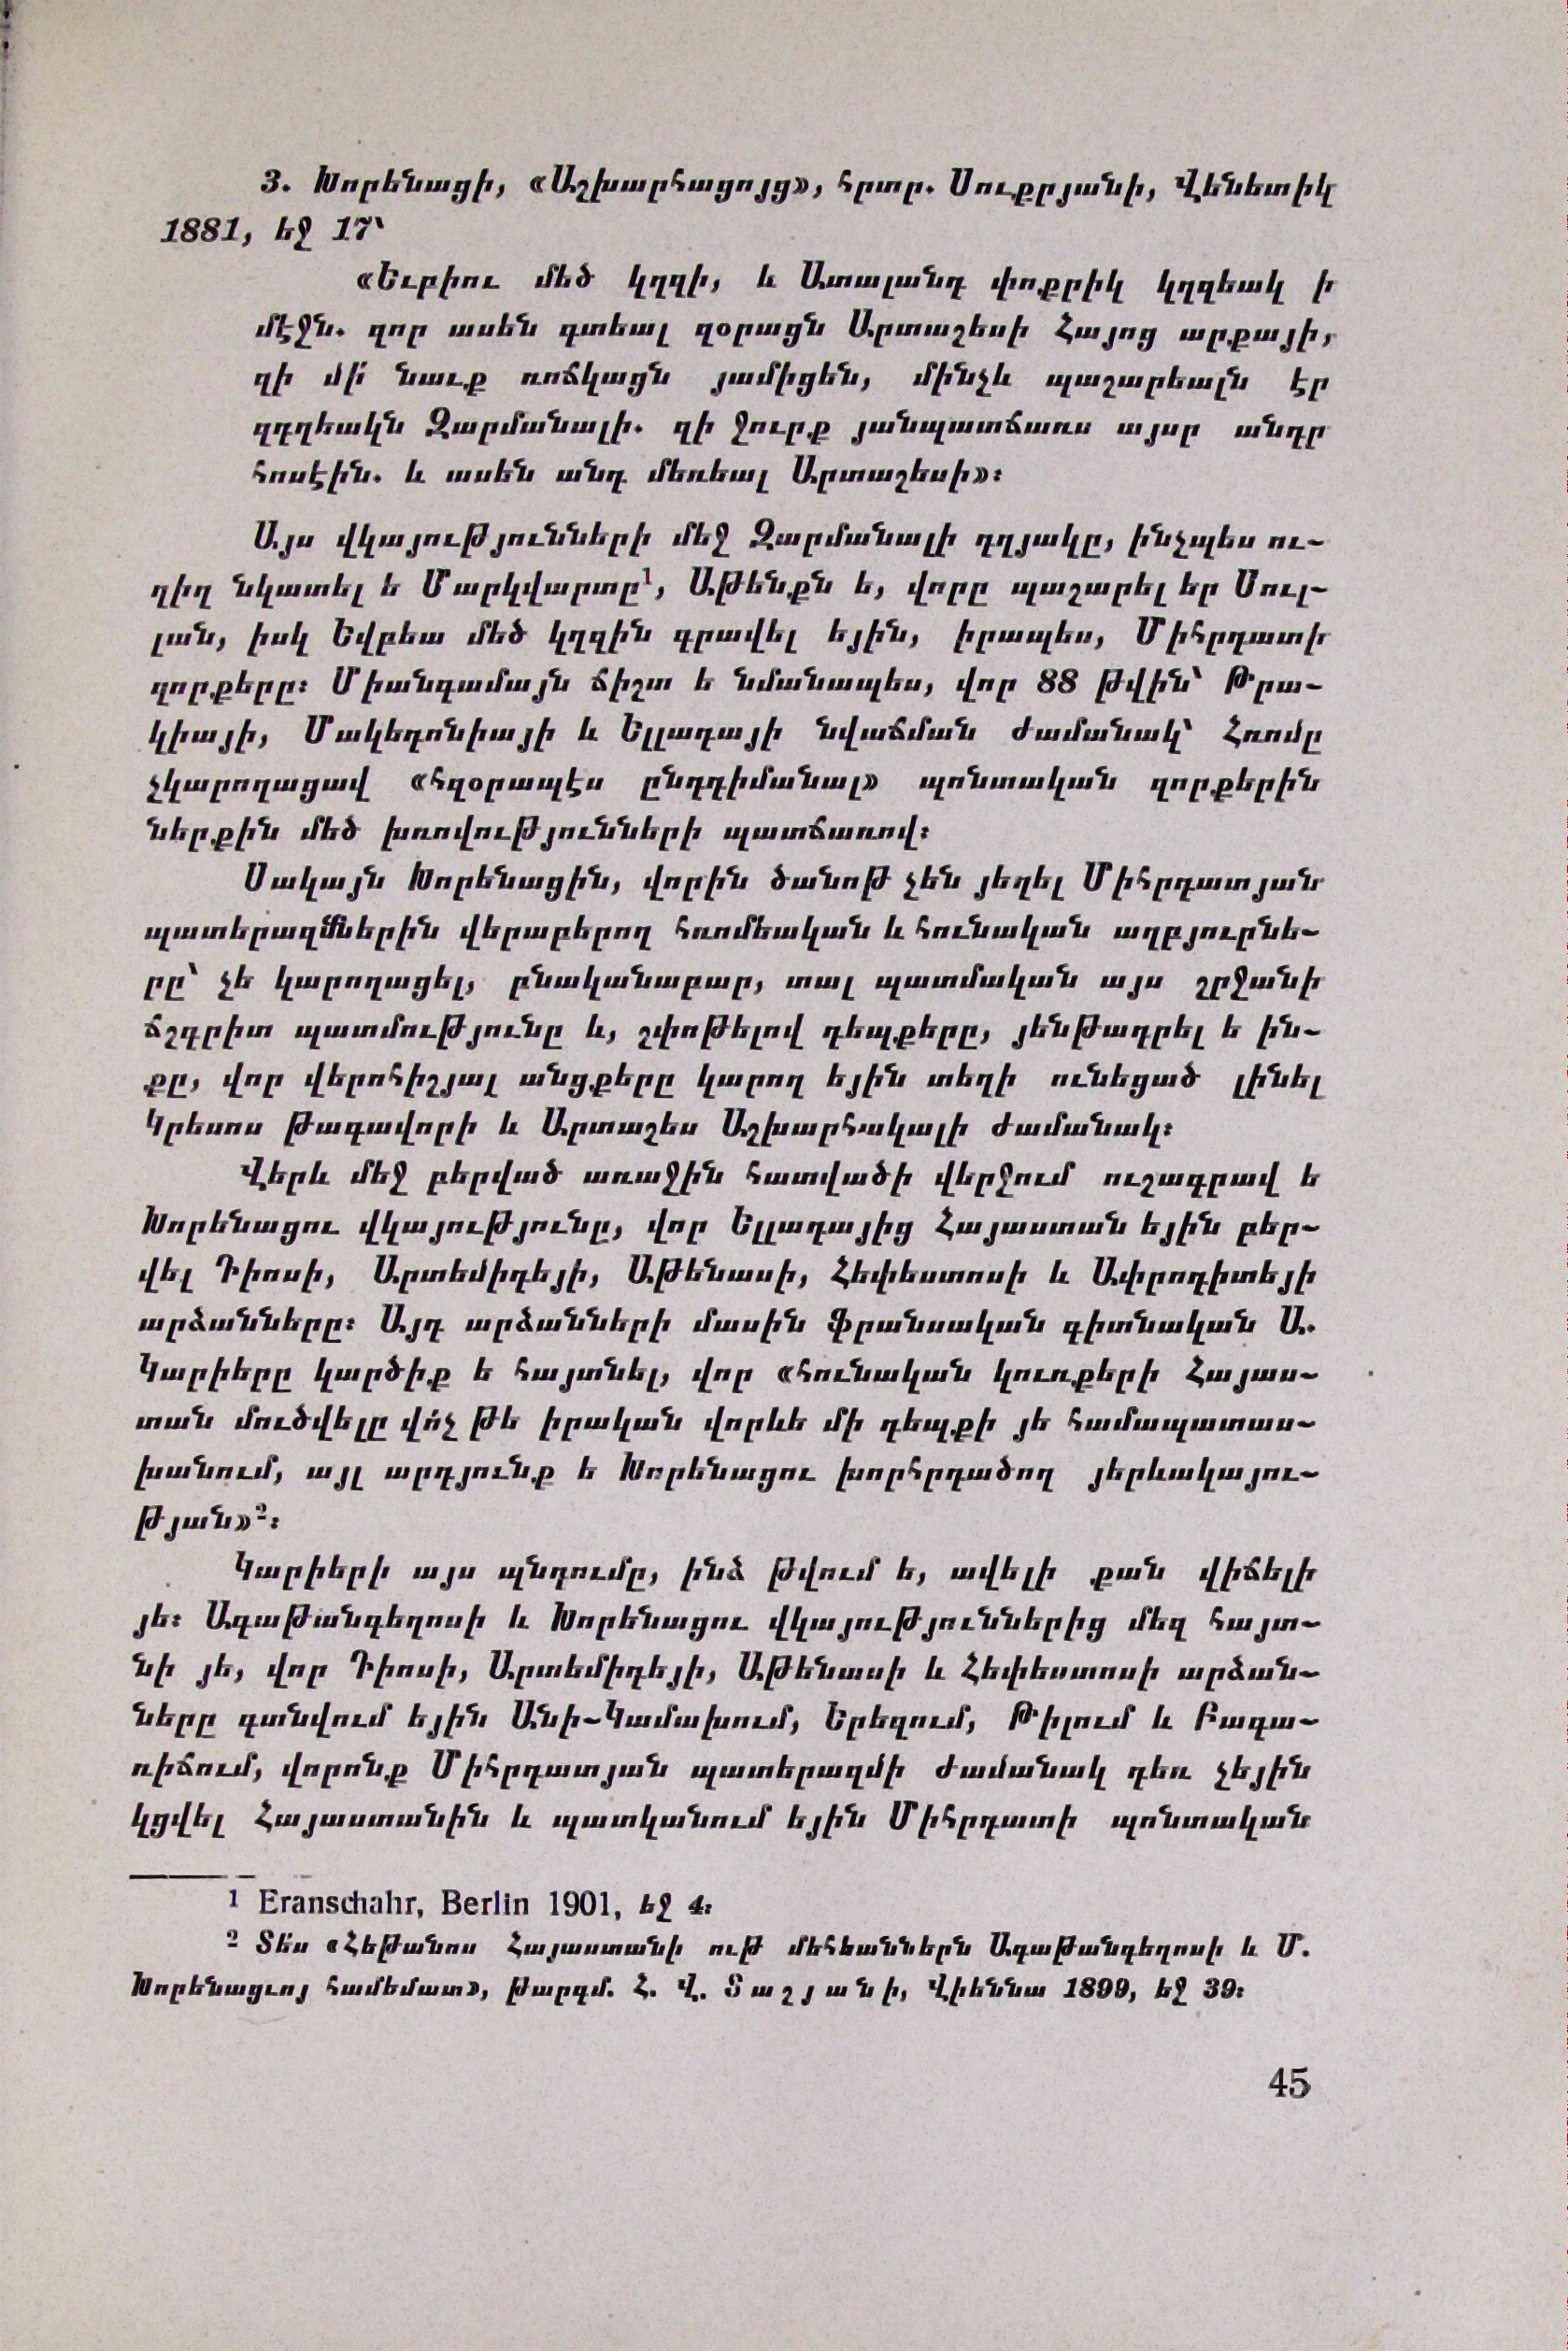 3. Խորենացի, «Աշխարհացոյց», հրտր. Սուքրյանի, Վենետիկ
1881, եջ 17՝
«Եւբիու մեծ կղզի, և Ատալանդ փոքրիկ կղզեակ ի
մէջն. զոր ասեն գտեալ զօրացն Արտաշեսի Հայոց արքայի,
զի մի՛ նաւք ռոճկացն յամիցեն, մինչև պաշարեալն էր
զդղեակն Զարմանալի. զի ջուրք յանպատճառս այսր անդր
հոսէին. և ասեն անդ մեռեալ Արտաշեսի»։
Այս վկայությունների մեջ Զարմանալի դղյակը, ինչպես ու-
ղիղ նկատել ե Մարկվարտը¹, Աթենքն ե, վորը պաշարել եր Սուլ-
լան, իսկ Եվբեա մեծ կղզին գրավել եյին, իրապես, Միհրդատի
զորքերը։ Միանգամայն ճիշտ ե նմանապես, վոր 88 թվին՝ Թրա-
կիայի, Մակեդոնիայի և Ելլադայի նվաճման ժամանակ՝ Հռոմը
չկարողացավ «հզօրապէս ընդդիմանալ» պոնտական զորքերին
ներքին մեծ խռովությունների պատճառով։
Սակայն Խորենացին, վորին ծանոթ չեն յեղել Միհրդատյան
պատերազմներին վերաբերող հռոմեական և հունական աղբյուրնե-
րը՝ չե կարողացել, բնականաբար, տալ պատմական այս շրջանի
ճշգրիտ պատմությունը և, շփոթելով դեպքերը, յենթադրել ե ին-
քը, վոր վերոհիշյալ անցքերը կարող եյին տեղի ունեցած լինել
Կրեսոս թագավորի և Արտաշես Աշխարհակալի ժամանակ։
Վերև մեջ բերված առաջին հատվածի վերջում ուշագրավ ե
Խորենացու վկայությունը, վոր Ելլադայից Հայաստան եյին բեր-
վել Դիոսի, Արտեմիդեյի, Աթենասի, Հեփեստոսի և Ափրոդիտեյի
արձանները։ Այդ արձանների մասին ֆրանսական գիտնական Ա.
Կարիերը կարծիք ե հայտնել, վոր «հունական կուռքերի Հայաս-
տան մուծվելը վո՛չ թե իրական վորևե մի դեպքի յե համապատաս-
խանում, այլ արդյունք ե Խորենացու խորհրդածող յերևակայու-
թյան»²։
Կարիերի այս պնդումը, ինձ թվում ե, ավելի քան վիճելի
յե։ Ագաթանգեղոսի և Խորենացու վկայություններից մեզ հայտ-
նի յե, վոր Դիոսի, Արտեմիդեյի, Աթենասի և Հեփեստոսի արձան-
ները գտնվում եյին Անի-Կամախում, Երեզում, Թիլում և Բագա-
ռիճում, վորոնք Միհրդատյան պատերազմի ժամանակ դեռ չեյին
կցվել Հայաստանին և պատկանում եյին Միհրդատի պոնտական
¹ Eranschahr, Berlin 1901, եջ 4։
² Տե՛ս «Հեթանոս Հայաստանի ութ մեհեաններն Ագաթանգեղոսի և Մ.
Խորենացւոյ համեմատ», թարգմ. Հ. Վ. Տաշյանի, Վիեննա 1899, եջ 39։
45